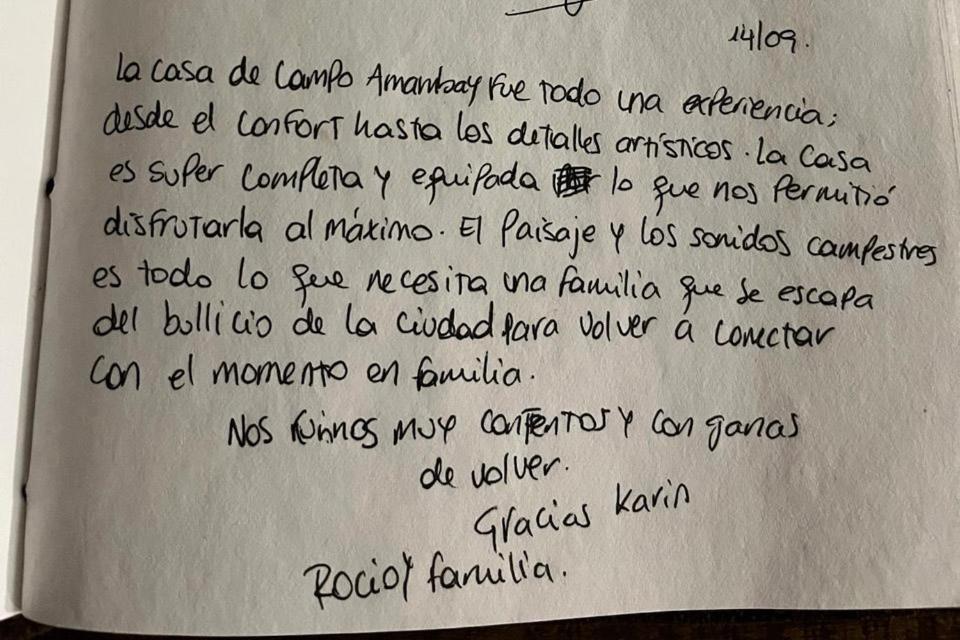 14/09.
La casa de campo Amanbay fue todo una experiencia;
desde el confort hasta los detalles artísticos. La casa
es super completa y equipada lo que nos permitió
disfrutarla al máximo. El paisaje y los sonidos campestres
es todo lo que necesita una familia que se escapa
del bullicio de la ciudad para volver a conectar
con el momento en familia.
Nos fuimos muy contentos y con ganas
de volver.
Gracias Karin
Rocio y familia.